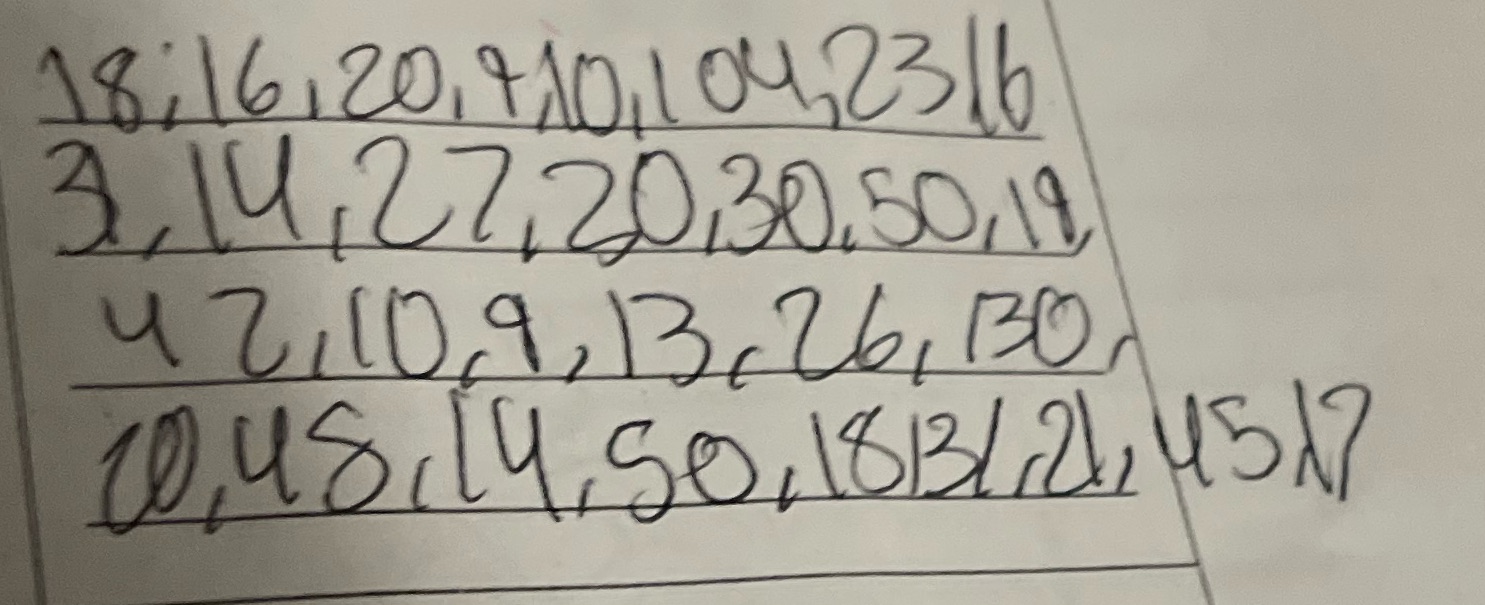 18,16,20,9,10,104,2316
3,14,27,20,30,50,19,
42,10,9,13,26,130,
20,48,14,50,18131,21,4517